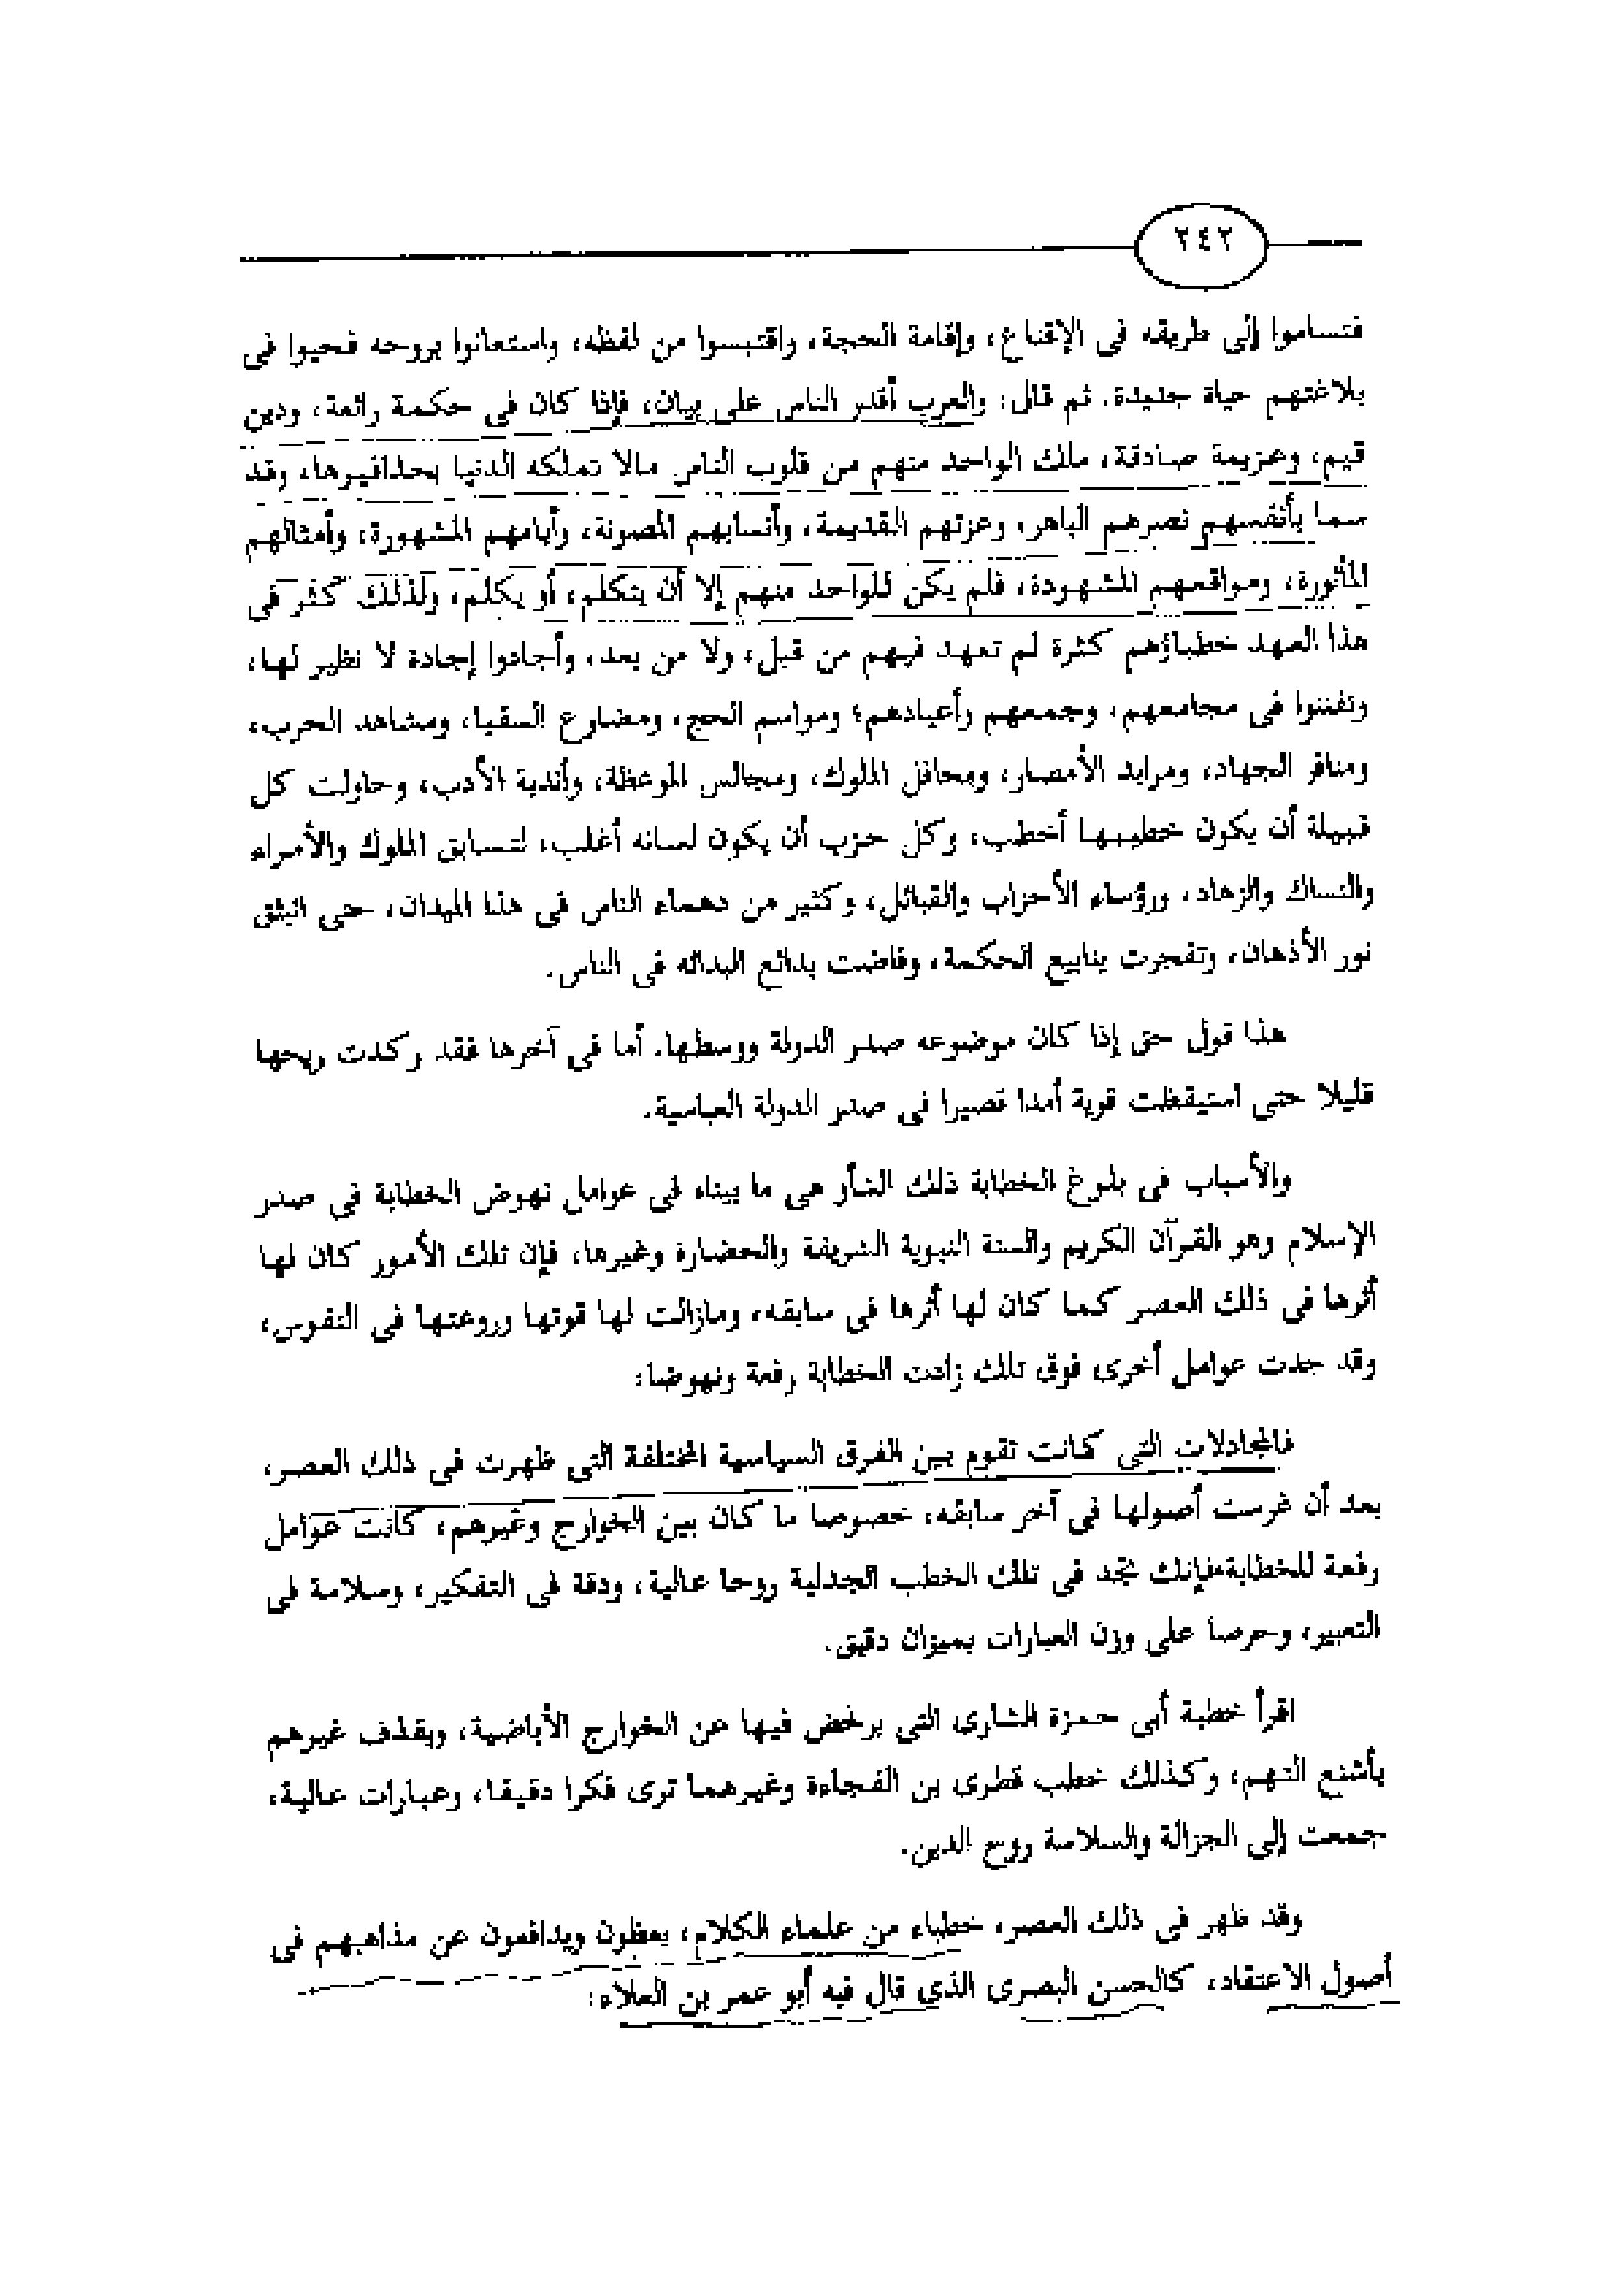 ٢٤٢
فتساموا إلى طريقه فى الإقناع، وإقامة الحجة، واقتبسوا من لفظه، واستعانوا بروحه فحيوا فى
بلاغتهم حياة جديدة. ثم قال: والعرب أقدر الناس على بيان، فإذا كان فى حكمة رائعة، ودين
قيم، وعزيمة صادقة، ملك الواحد منهم من قلوب الناس مالا تملكه الدنيا بحذافيرها، وقد
سما بأنفسهم نصرهم الباهر، وعزتهم القديمة، وأنسابهم المصونة، وأيامهم المشهورة، وأمثالهم
المأثورة، ومواقعهم المشهودة، فلم يكن للواحد منهم إلا أن يتكلم، أو يكلم، ولذلك كثر فى
هذا العهد خطباؤهم كثرة لم تعهد فيهم من قبل، ولا من بعد، وأجادوا إجادة لا نظير لها،
وتفننوا فى مجامعهم، وجمعهم وأعيادهم؛ ومواسم الحج، ومضاوع السقيا، ومشاهد الحرب،
ومنافر الجهاد، ومرابد الأمصار، ومحافل الملوك، ومجالس الموعظة، وأندية الأدب، وحاولت كل
قبيلة أن يكون خطيبها أخطب، وكل حزب أن يكون لسانه أغلب، لتسابق الملوك والأمراء
والنساك والزهاد، ورؤساء الأحزاب والقبائل، وكثير من دهماء الناس فى هذا الميدان، حتى انبثق
نور الأذهان، وتفجرت ينابيع الحكمة، وفاضت بدائع البدائه فى الناس.
هذا قول حق إذا كان موضوعه صدر الدولة ووسطها. أما فى آخرها فقد ركدت ريحها
قليلا حتى استيقظت قوية أمدا قصيرا فى صدر الدولة العباسية.
والأسباب فى بلوغ الخطابة ذلك الشأو هى ما بيناه فى عوامل نهوض الخطابة فى صدر
الإسلام وهو القرآن الكريم والسنة النبوية الشريفة والحضارة وغيرها، فإن تلك الأمور كان لها
أثرها فى ذلك العصر كما كان لها أثرها فى سابقه، ومازالت لها قوتها وروعتها فى النفوس،
وقد جدت عوامل أخرى فوق تلك زادت الخطابة رفعة ونهوضا:
فالمجادلات التى كانت تقوم بين الفرق السياسية المختلفة التى ظهرت فى ذلك العصر،
بعد أن غرست أصولها فى آخر سابقه، خصوصا ما كان بين الخوارج وغيرهم، كانت عوامل
رفعة للخطابة، فإنك تجد فى تلك الخطب الجدلية روحا عالية، ودقة فى التفكير، وسلامة فى
التعبير، وحرصا على وزن العبارات بميزان دقيق.
اقرأ خطبة أبى حمزة الشارى التى يرخض فيها عن الخوارج الأباضية، ويقذف غيرهم
بأشنع التهم، وكذلك خطب قطرى بن الفجاءة وغيرهما ترى فكرا دقيقا، وعبارات عالية،
جمعت إلى الجزالة والسلامة روح الدين.
وقد ظهر فى ذلك العصر، خطباء من علماء الكلام، يعظون ويدافعون عن مذاهبهم فى
أصول الاعتقاد، كالحسن البصرى الذي قال فيه أبو عمر بن العلاء: